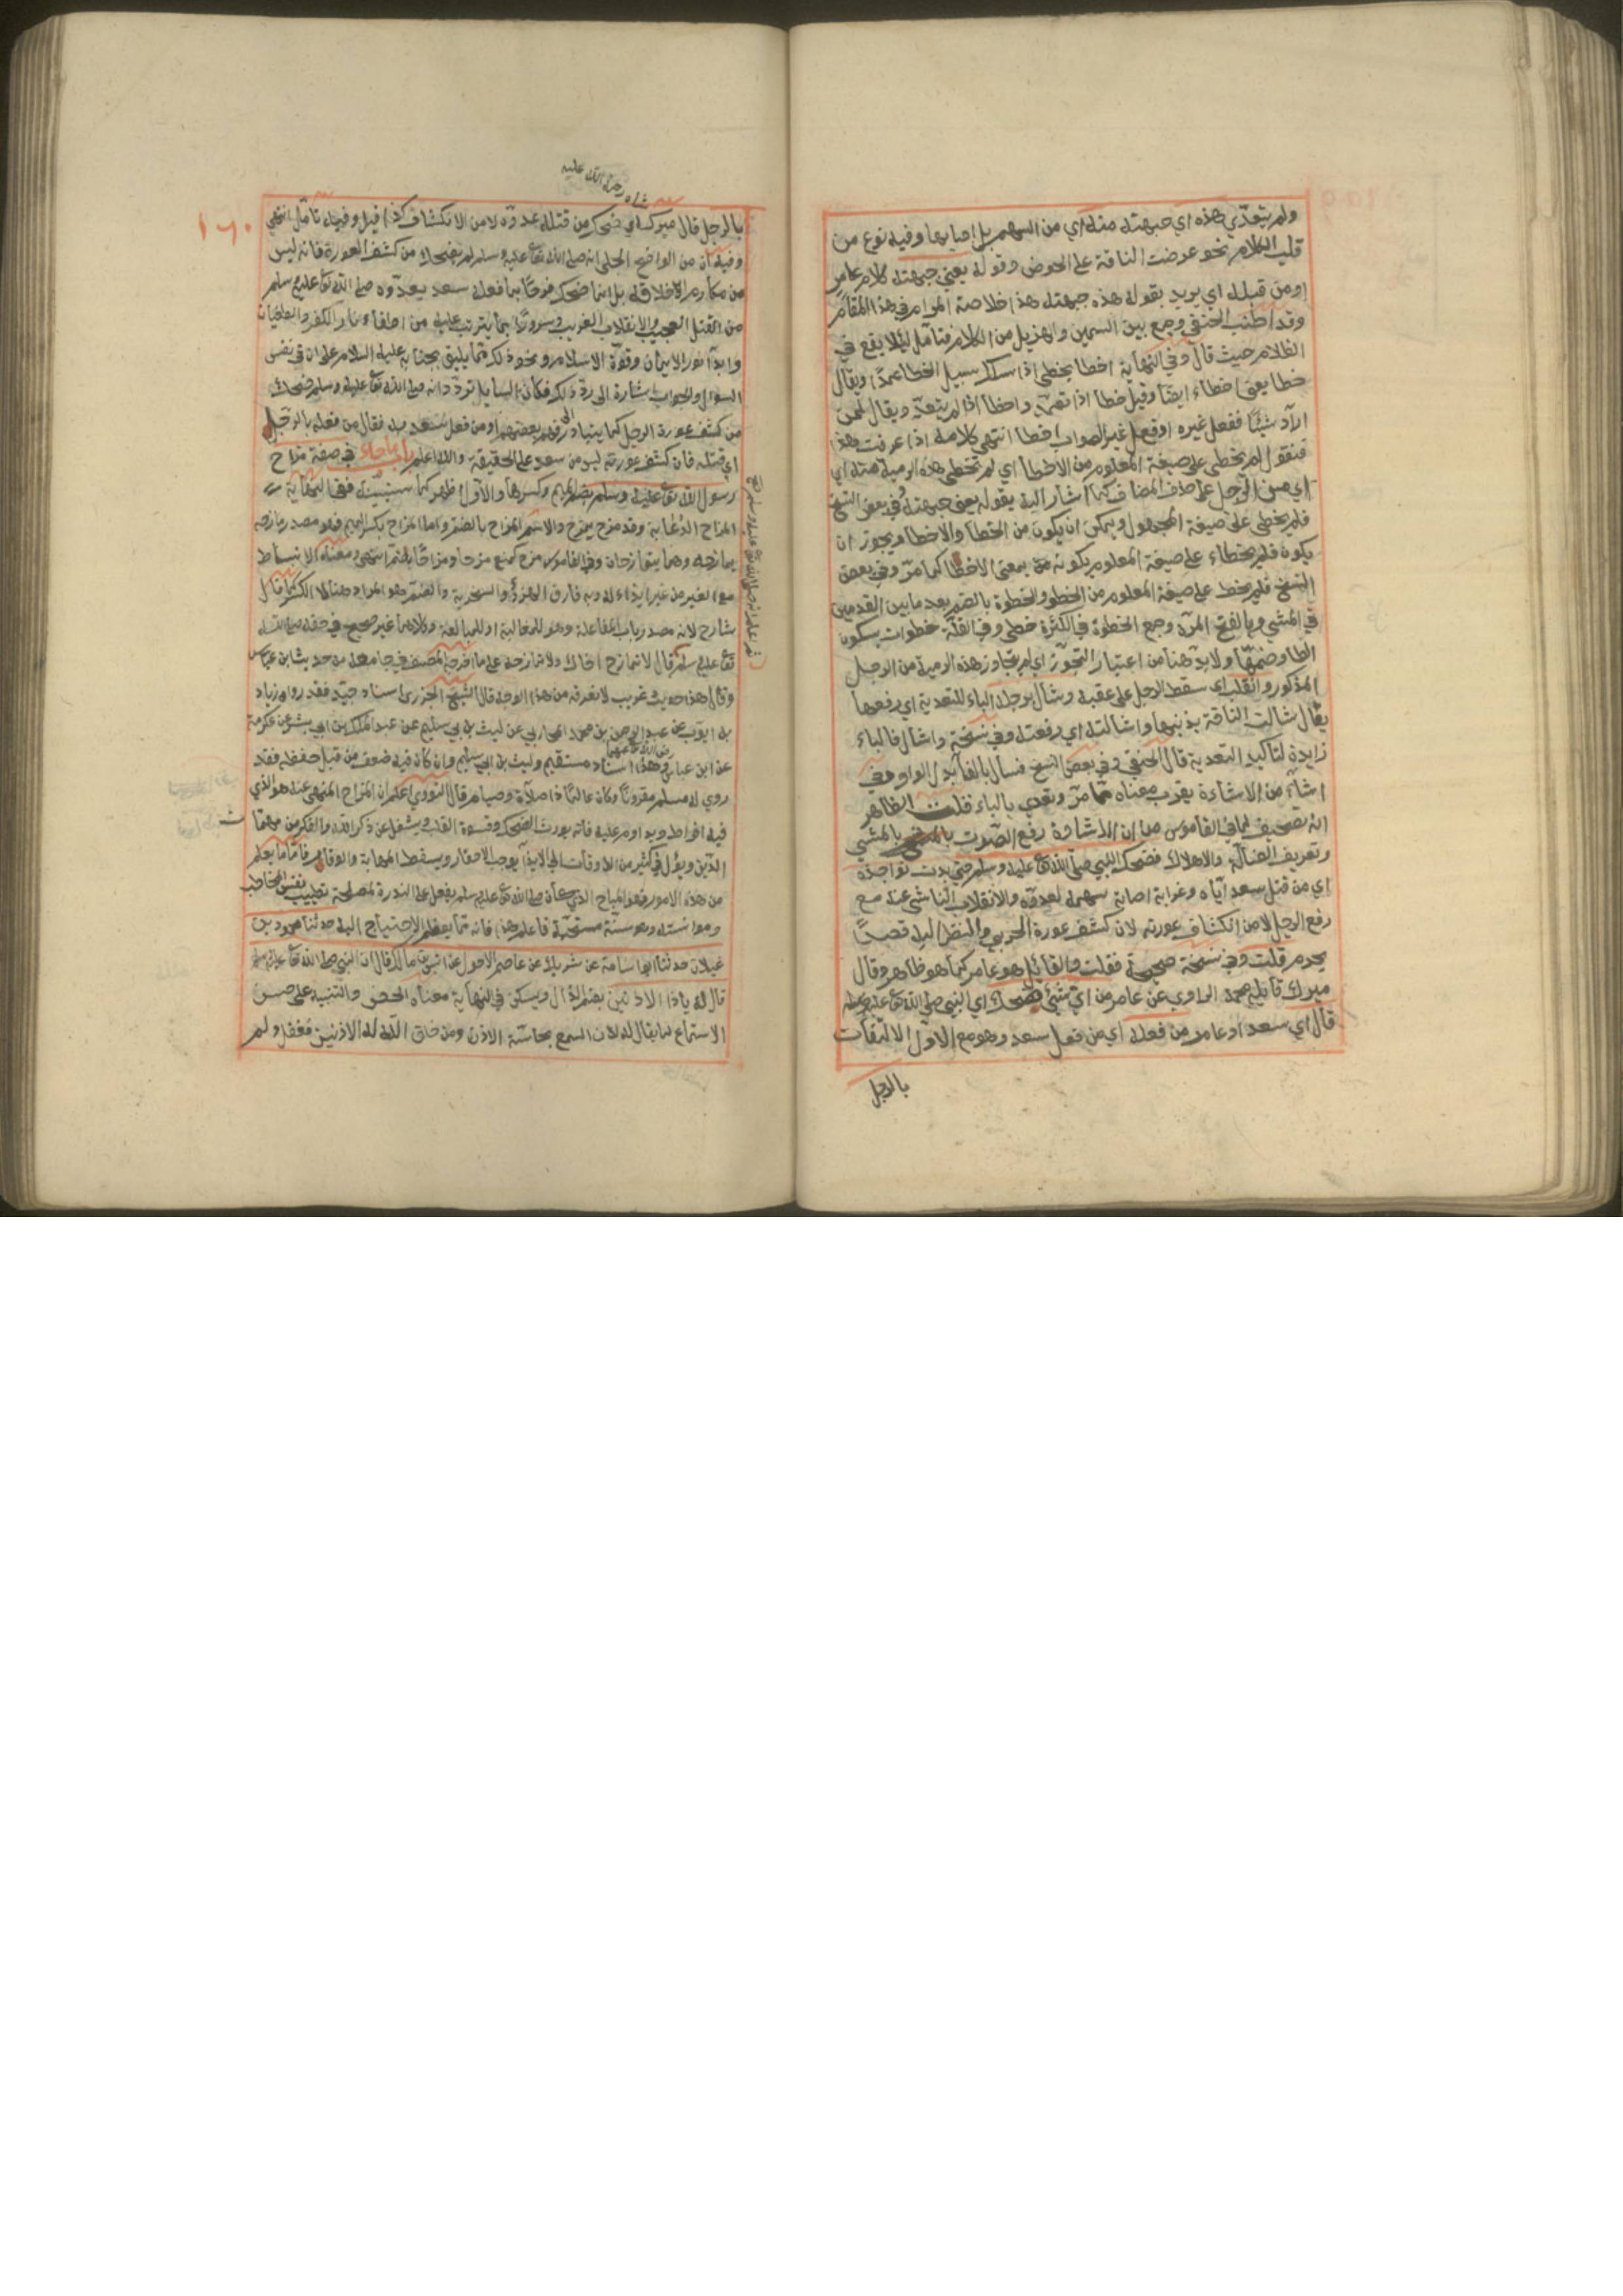 ولم يتعدّي هذه اي جبهته منه اي من السهم بل اصابها وفيه نوع من
قلب الكلام نحو عرضت الناقة على الحوض وقوله يعني جبهته كلام عامر
اومن قبله اي يريد بقوله هذه جبهته هذا خلاصة المرام في هذا المقام
وقد اطنب الحنفي وجمع بين السمين والهزيل من الكلام فتأمل لئلا يقع في
الظلام حيث قال وفي النهاية اخطأ يخطئ اذا سلك سبيل الخطا عمدًا ويقال
خطا يعني اخطاء ايضًا وقيل خطا اذا تعمّد واخطأ اذا لم يتعمّد ويقال لمن
اراد شيئًا ففعل غيره اوفعل غير الصواب اخطا انتهى كلامه اذا عرفت هذا
فنقول لم يخطئ على صيغة المعلوم من الاخطأ اي لم تخطئ هذه الرمية منه اي
اي من الرجل على حذف المضاف كما اشار اليه بقوله يعني جبهته وفي بعض النسخ
فلم يخطى على صيغة المجهول ويمكن ان يكون من الخطأ والاخطا ويجوز ان
يكون فلم يخطاء على صيغة المعلوم بكونه من بمعنى الاخطا كما مرّ وفي بعض
النسخ فلم يخط على صيغة المعلوم من الخطو والخطوة بالضم بعد ما بين القدمين
في المشي وبالفتح المرّة وجمع الخطوة في الكثرة خطى وفي القلّة خطوات بسكون
الطا وضمّها ولا بدّ هنا من اعتبار التجوّز اي لم يتجاوز هذه الرمية من الرجل
المذكور وانقلب اي سقط الرجل على عقبه وشال برجله الباء للتعدية اي رفعها
يقال شالت الناقة بذنبها واشالته اي رفعته وفي نسخة واشال فالباء
زايدة لتأكيد التعدية قال الحنفي وفي بعض النسخ فسال بالفا بدل الواو وفي
اشاء من الاشاءة يقرب معناه مما مرّ وتعدي بالباء قلت الظاهر
انه تصحيف لما في القاموس من ان الاشادة رفع الصّوت بالمشي
وتعريف الضالّة والاهلاك فضحك النبي صلى الله تع عليه وسلم حتى بدت نواجذه
اي من قتل سعد اياه وغرابة اصابة سهمه لعدوّه والانقلاب الناشي عنه مع
رفع الرجل لا من انكشاف عورته لان كشف عورة الحربي والنظر اليه قصدًا
يحرم قلت وفي نسخة صحيحة فقلت والقائل هو عامر كما هو ظاهر وقال
ميرك قايله محمد الراوي عن عامر من اي شيئ ضحك اي النبي صلى الله تع عليه وسلم
قال اي سعد او عامر من فعله اي من فعل سعد وهو مع الاول الالتفات
بالرجل
شاه رحمة الله عليه
١٦٠
بالرجل قال ميرك اي ضحك من قتله عدوّه لا من الانكشاف كذا قيل وفيه تأمّل انتهى
وفيه أن من الواضح الجلي انه صلى الله تع عليه وسلم لم يضحك من كشف العورة فانه ليس
من مكارم الاخلاق له بل انما ضحك فرحًا بما فعله سعد بعدوّه صلى الله تع عليه وسلم
من القتل العجيب والانقلاب الغريب وسرورًا بما يترتب عليه من اطفاء نار الكفر
وابدا نور الايمان وقوّة الاسلام ونحو ذلك مما يليق بجنابه عليه السلام على ان في نفس
السؤال والجواب اشارة الى ردّ ذلك فكأن السايل تردّد انه صلى الله تع عليه وسلم ضحك
من كشف عورة الرجل كما يتبادر الى فهم بعضهم او من فعل سعد به فقال من فعله بالرجل
اي قتله فان كشف عورته ليس من سعد على الحقيقة والله اعلم باب ما جاء في صفة مزاح
رسول الله تع عليه وسلم بضم الميم وكسرها والاول اظهر كما سيتبيّن ففي النهاية
المزاح الدُعابة وقد مزح يمزح والاسم المزاح بالضم واما المزاح بكسر الميم فهو مصدر مازحه
يمازحه وهما يتمازحان وفي القاموس مزح كمنع مزحا ومزاحًا بالضم انتهى ومعناه الانبساط
مع الغير من غير ايذاء له وبه فارق الهزؤ والسخرية والضم هو المراد هنا لا الكسر كما قال
شارح لانه مصدر باب المفاعلة وهو للمغالبة او للمبالغة وكلاهما غير صحيح في حقه صلى الله
تع عليه وسلم قال لا تمازح اخاك ولا تمازحه على ما اخرجه المصنف في جامعه من حديث ابن عباس
وقال هذا حديث غريب لا نعرفه من هذا الوجه قال الشيخ الجزري اسناد جيّد فقد رواه زياد
بن ايوب عن عبد الرحمن بن محمد المحاربي عن ليث بن ابي سليم عن عبد الملك بن ابي بشير عن عكرمة
رضي الله تع عنهما
عن ابن عباس وهذا اسناد مستقيم وليث بن ابي سليم وان كان فيه ضعف من قبل حفظه فقد
روي له مسلم مقرونًا وكان عالمًا ذا صلاة وصيام قال النووي اعلم ان المزاح المنهي عنه هو الذي
فيه افراط ويداوم عليه فانه يورث الضحك وقسوة القلب ويشغل عن ذكر الله والفكر من مهمّات
الدّين ويؤل في كثير من الاوقات الى الايذا يوجب الاحقاد ويسقط المهابة والوقار فامّا ما يسلم
من هذه الامور فهو المباح الذي كان صلى الله تع عليه وسلم يفعل على الندرة لمصلحة تطييب نفس المخاطب
وموانسته وهو سنّة مستحبّة فاعلم هذا فانه ممّا يعظم الاحتياج اليه حدثنا محمود بن
غيلان حدثنا ابو اسامة عن شريك عن عاصم الاحول عن انس بن مالك قال ان النبي صلى الله تع عليه وسلم
قال له يا ذا الاذنين بضم الذال ويسكن في النهاية معناه الحض والتنبيه على حسن
الاستماع لما يقال له لان السمع بحاسّة الاذن ومن خلق الله له الاذنين فغفل ولم